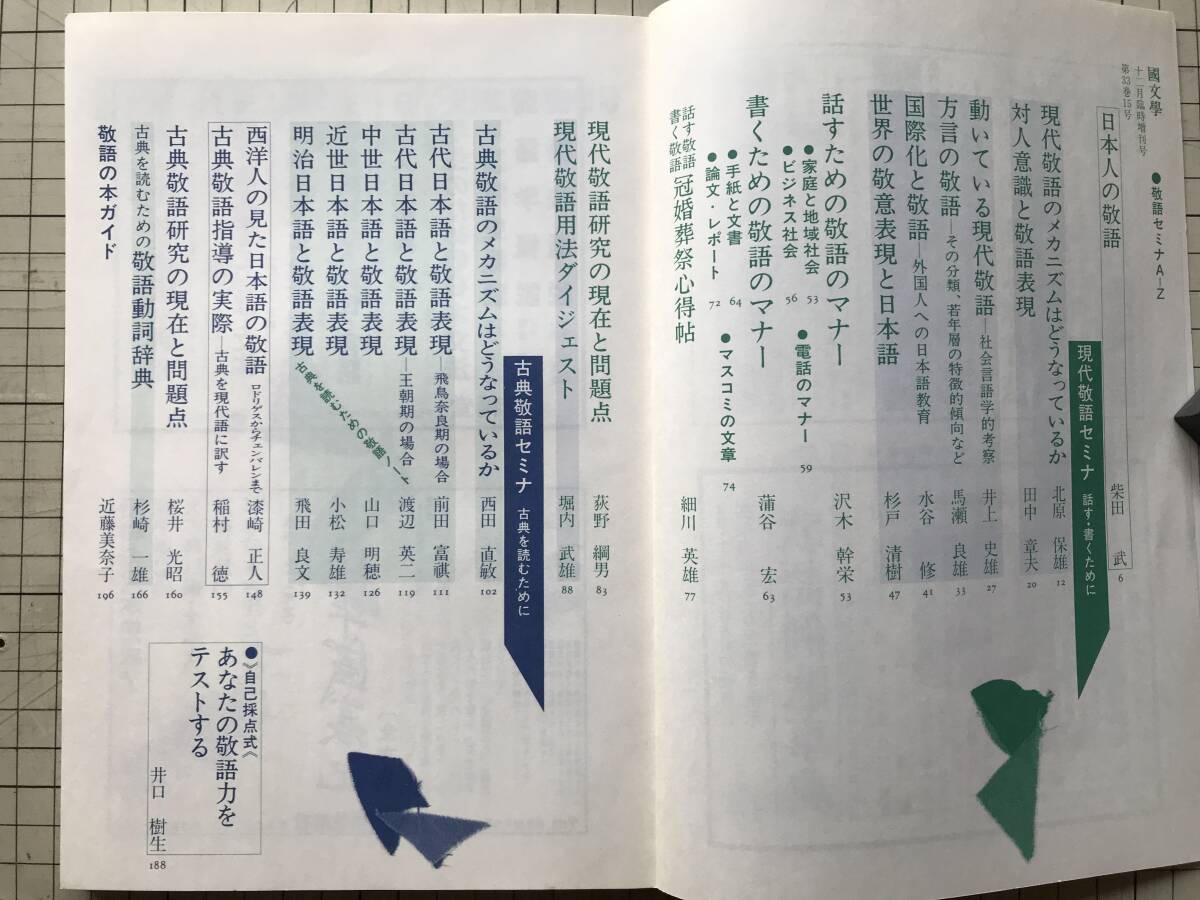 國文學
十二月臨時増刊号
第33巻15号
●敬語セミナA−Z
日本人の敬語 柴田 武 6
現代敬語セミナ 話す・書くために
現代敬語のメカニズムはどうなっているか 北原 保雄 12
対人意識と敬語表現 田中 章夫 20
動いている現代敬語―社会言語学的考察 井上 史雄 27
方言の敬語―その分類、若年層の特徴的傾向など 馬瀬 良雄 33
国際化と敬語―外国人への日本語教育 水谷 修 41
世界の敬意表現と日本語 杉戸 清樹 47
話すための敬語のマナー 沢木 幹栄 53
●家庭と地域社会 53
●電話のマナー 59
●ビジネス社会 56
書くための敬語のマナー 蒲谷 宏 63
●手紙と文書 64
●マスコミの文章 74
●論文・レポート 72
話す敬語
書く敬語
冠婚葬祭心得帖 細川 英雄 77
現代敬語研究の現在と問題点 荻野 綱男 83
現代敬語用法ダイジェスト 堀内 武雄 88
古典敬語セミナ 古典を読むために
古典敬語のメカニズムはどうなっているか 西田 直敏 102
古代日本語と敬語表現 飛鳥奈良期の場合 前田 富祺 111
古代日本語と敬語表現―王朝期の場合 渡辺 英二 119
中世日本語と敬語表現 山口 明穂 126
近世日本語と敬語表現 小松 寿雄 132
明治日本語と敬語表現 飛田 良文 139
古典を読むための敬語ノート
西洋人の見た日本語の敬語 ロドリゲスからチェンバレンまで 漆崎 正人 148
古典敬語指導の実際―古典を現代語に訳す 稲村 徳 155
古典敬語研究の現在と問題点 桜井 光昭 160
古典を読むための敬語動詞辞典 杉崎 一雄 166
敬語の本ガイド 近藤美奈子 196
●《自己採点式》
あなたの敬語力を
テストする
井口 樹生 188